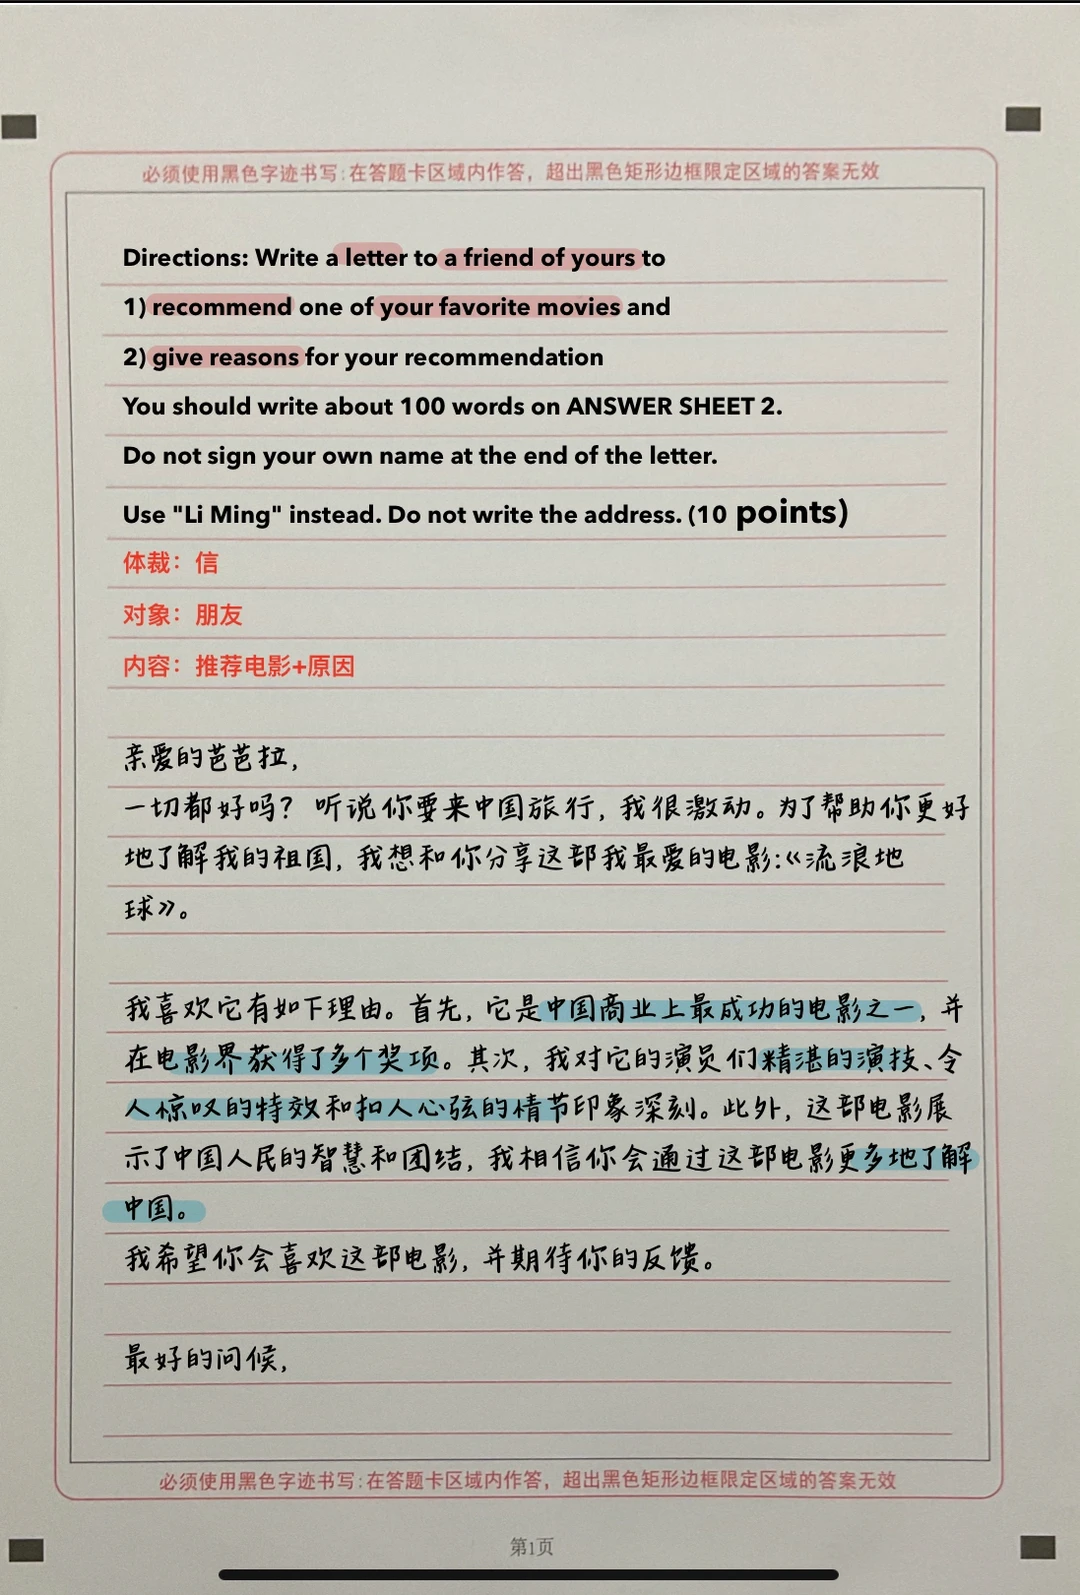 必须使用黑色字迹书写:在答题卡区域内作答，超出黑色矩形边框限定区域的答案无效
Directions: Write a letter to a friend of yours to
1) recommend one of your favorite movies and
2) give reasons for your recommendation
You should write about 100 words on ANSWER SHEET 2.
Do not sign your own name at the end of the letter.
Use "Li Ming" instead. Do not write the address. (10 points)
体裁：信
对象：朋友
内容：推荐电影+原因
亲爱的芭芭拉，
一切都好吗？听说你要来中国旅行，我很激动。为了帮助你更好
地了解我的祖国，我想和你分享这部我最爱的电影:《流浪地
球》。
我喜欢它有如下理由。首先，它是中国商业上最成功的电影之一，并
在电影界获得了多个奖项。其次，我对它的演员们精湛的演技、令
人惊叹的特效和扣人心弦的情节印象深刻。此外，这部电影展
示了中国人民的智慧和团结，我相信你会通过这部电影更多地了解
中国。
我希望你会喜欢这部电影，并期待你的反馈。
最好的问候，
必须使用黑色字迹书写:在答题卡区域内作答，超出黑色矩形边框限定区域的答案无效
第1页